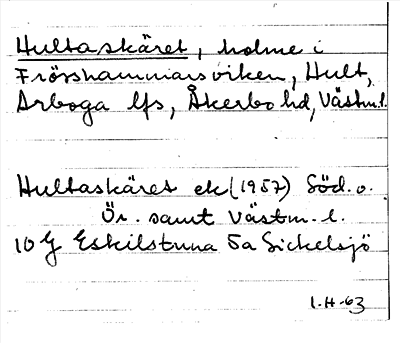 Hultaskäret, holme i
Frösshammarsviken, Hult,
Arboga lfs, Åkerbo hd, Västm.l.
Hultaskäret ek (1957) Söd. o.
Ör. samt Västm. l.
10 G Eskilstuna 5a Sickelsjö
I-H-63